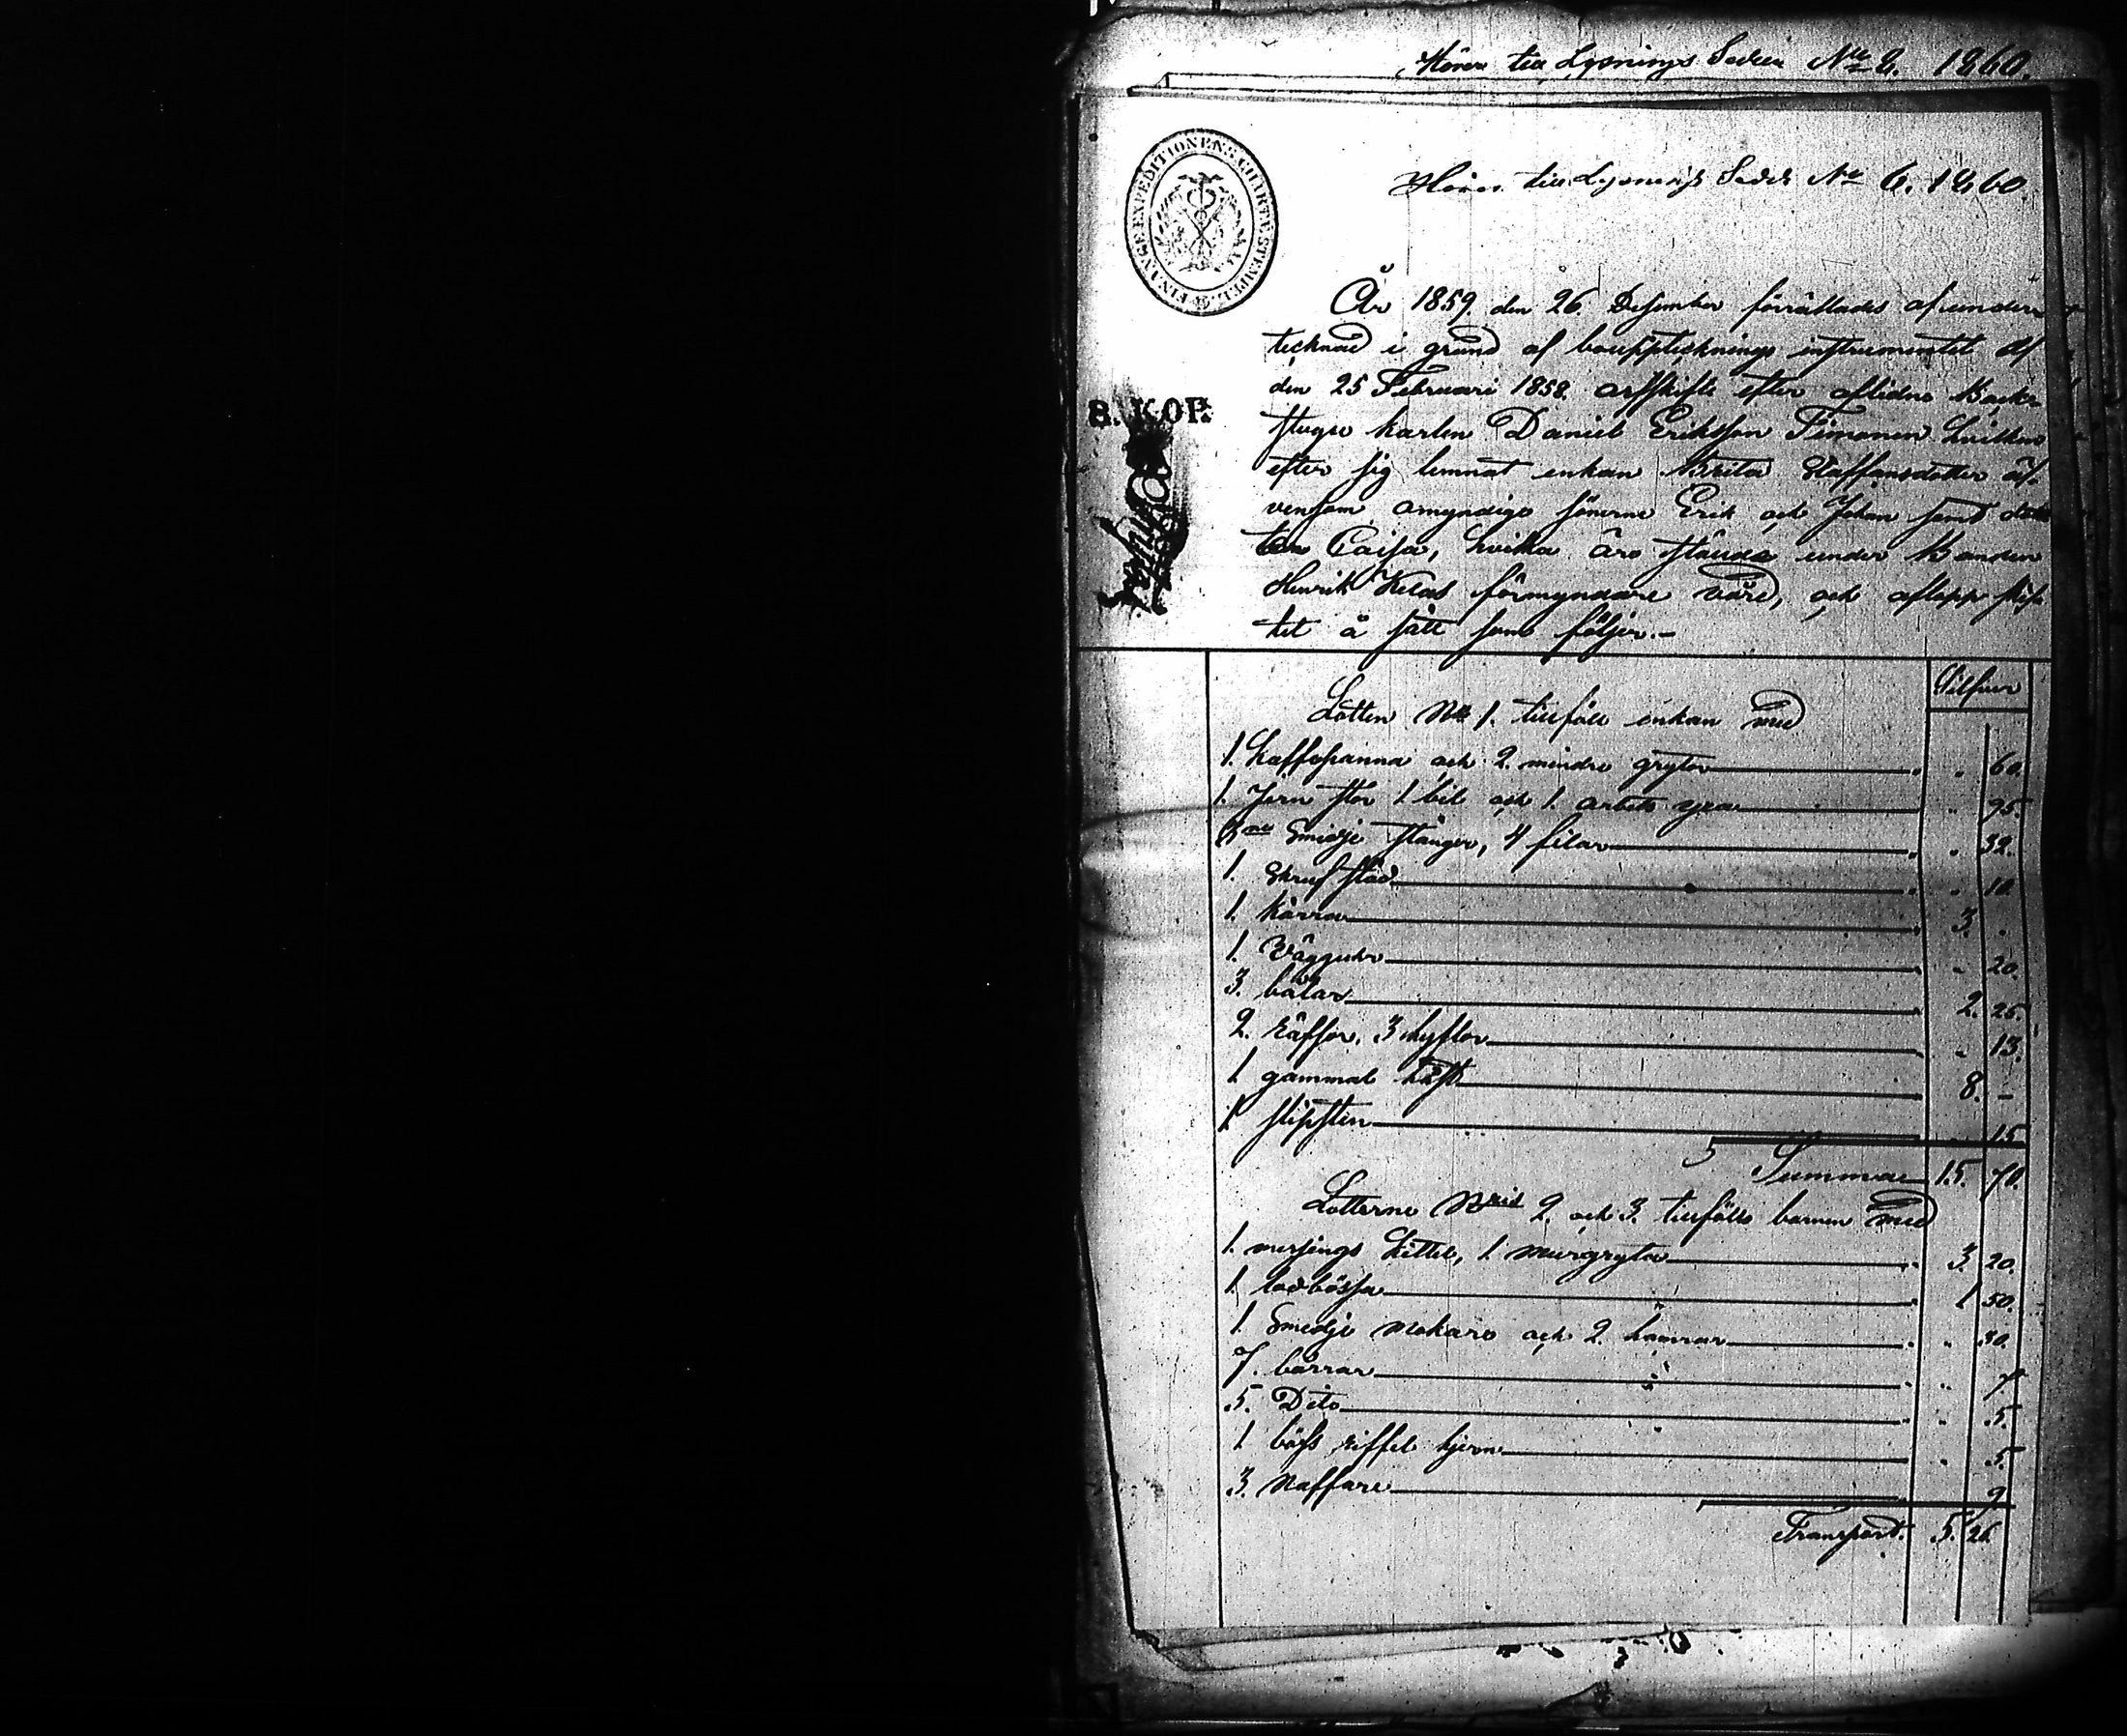 Hörer till Lysnings Sedeln No 8. 1860.
Hörer till Lysnings Sedeln No 6. 1860
FINANCE EXPEDITIONENS CHARTÆ STEMPEL
8. KOP.
År 1859 den 26 Desember förrättades af under
tecknad i grund af bouppteckings instrumentet af
den 25 Februari 1858 arfskifte efter aflidne Back-
stugu karlen Daniel Eriksson Timonen hvilken
efter sig lemnat enkan Brita Staffansdotter äf-
vensom omyndige sönerne Erik och Johan samt dot
tren Caisa, hvilka äro stånde under Bonden
Henrik Kelas förmyndare vård, och aflopp skif
tet å sätt som följer.-
Silfver
Lotten No 1. tillföll enkan med
1. kaffepanna och 2. mindre grytor " 60.
1. Jern stör 1 bil och 1. arbets yxa " 95.
3ne Smidje stänger, 4 filar " 32.
1. Skruf städ " 10.
1. kärra 3. "
1. Vägguhr " 20.
3. båtar 2. 25.
2. räfsor, 3 hyflor " 13.
1 gammal häst 8. -
1 slipsten " 15
Summa 15. 70.
Lotterne Nris 2. och 3. tillföllo barnen med
1. messings kittel, 1 murgryta 3. 20.
1. lodbössa 1 50.
1. Smidje och 2. hamrar " 30.
7. bårrar " 7
5. Dito " 5.
1 böss riffel hjern " 5.
3. Naffare 9
Transport. 5. 26.